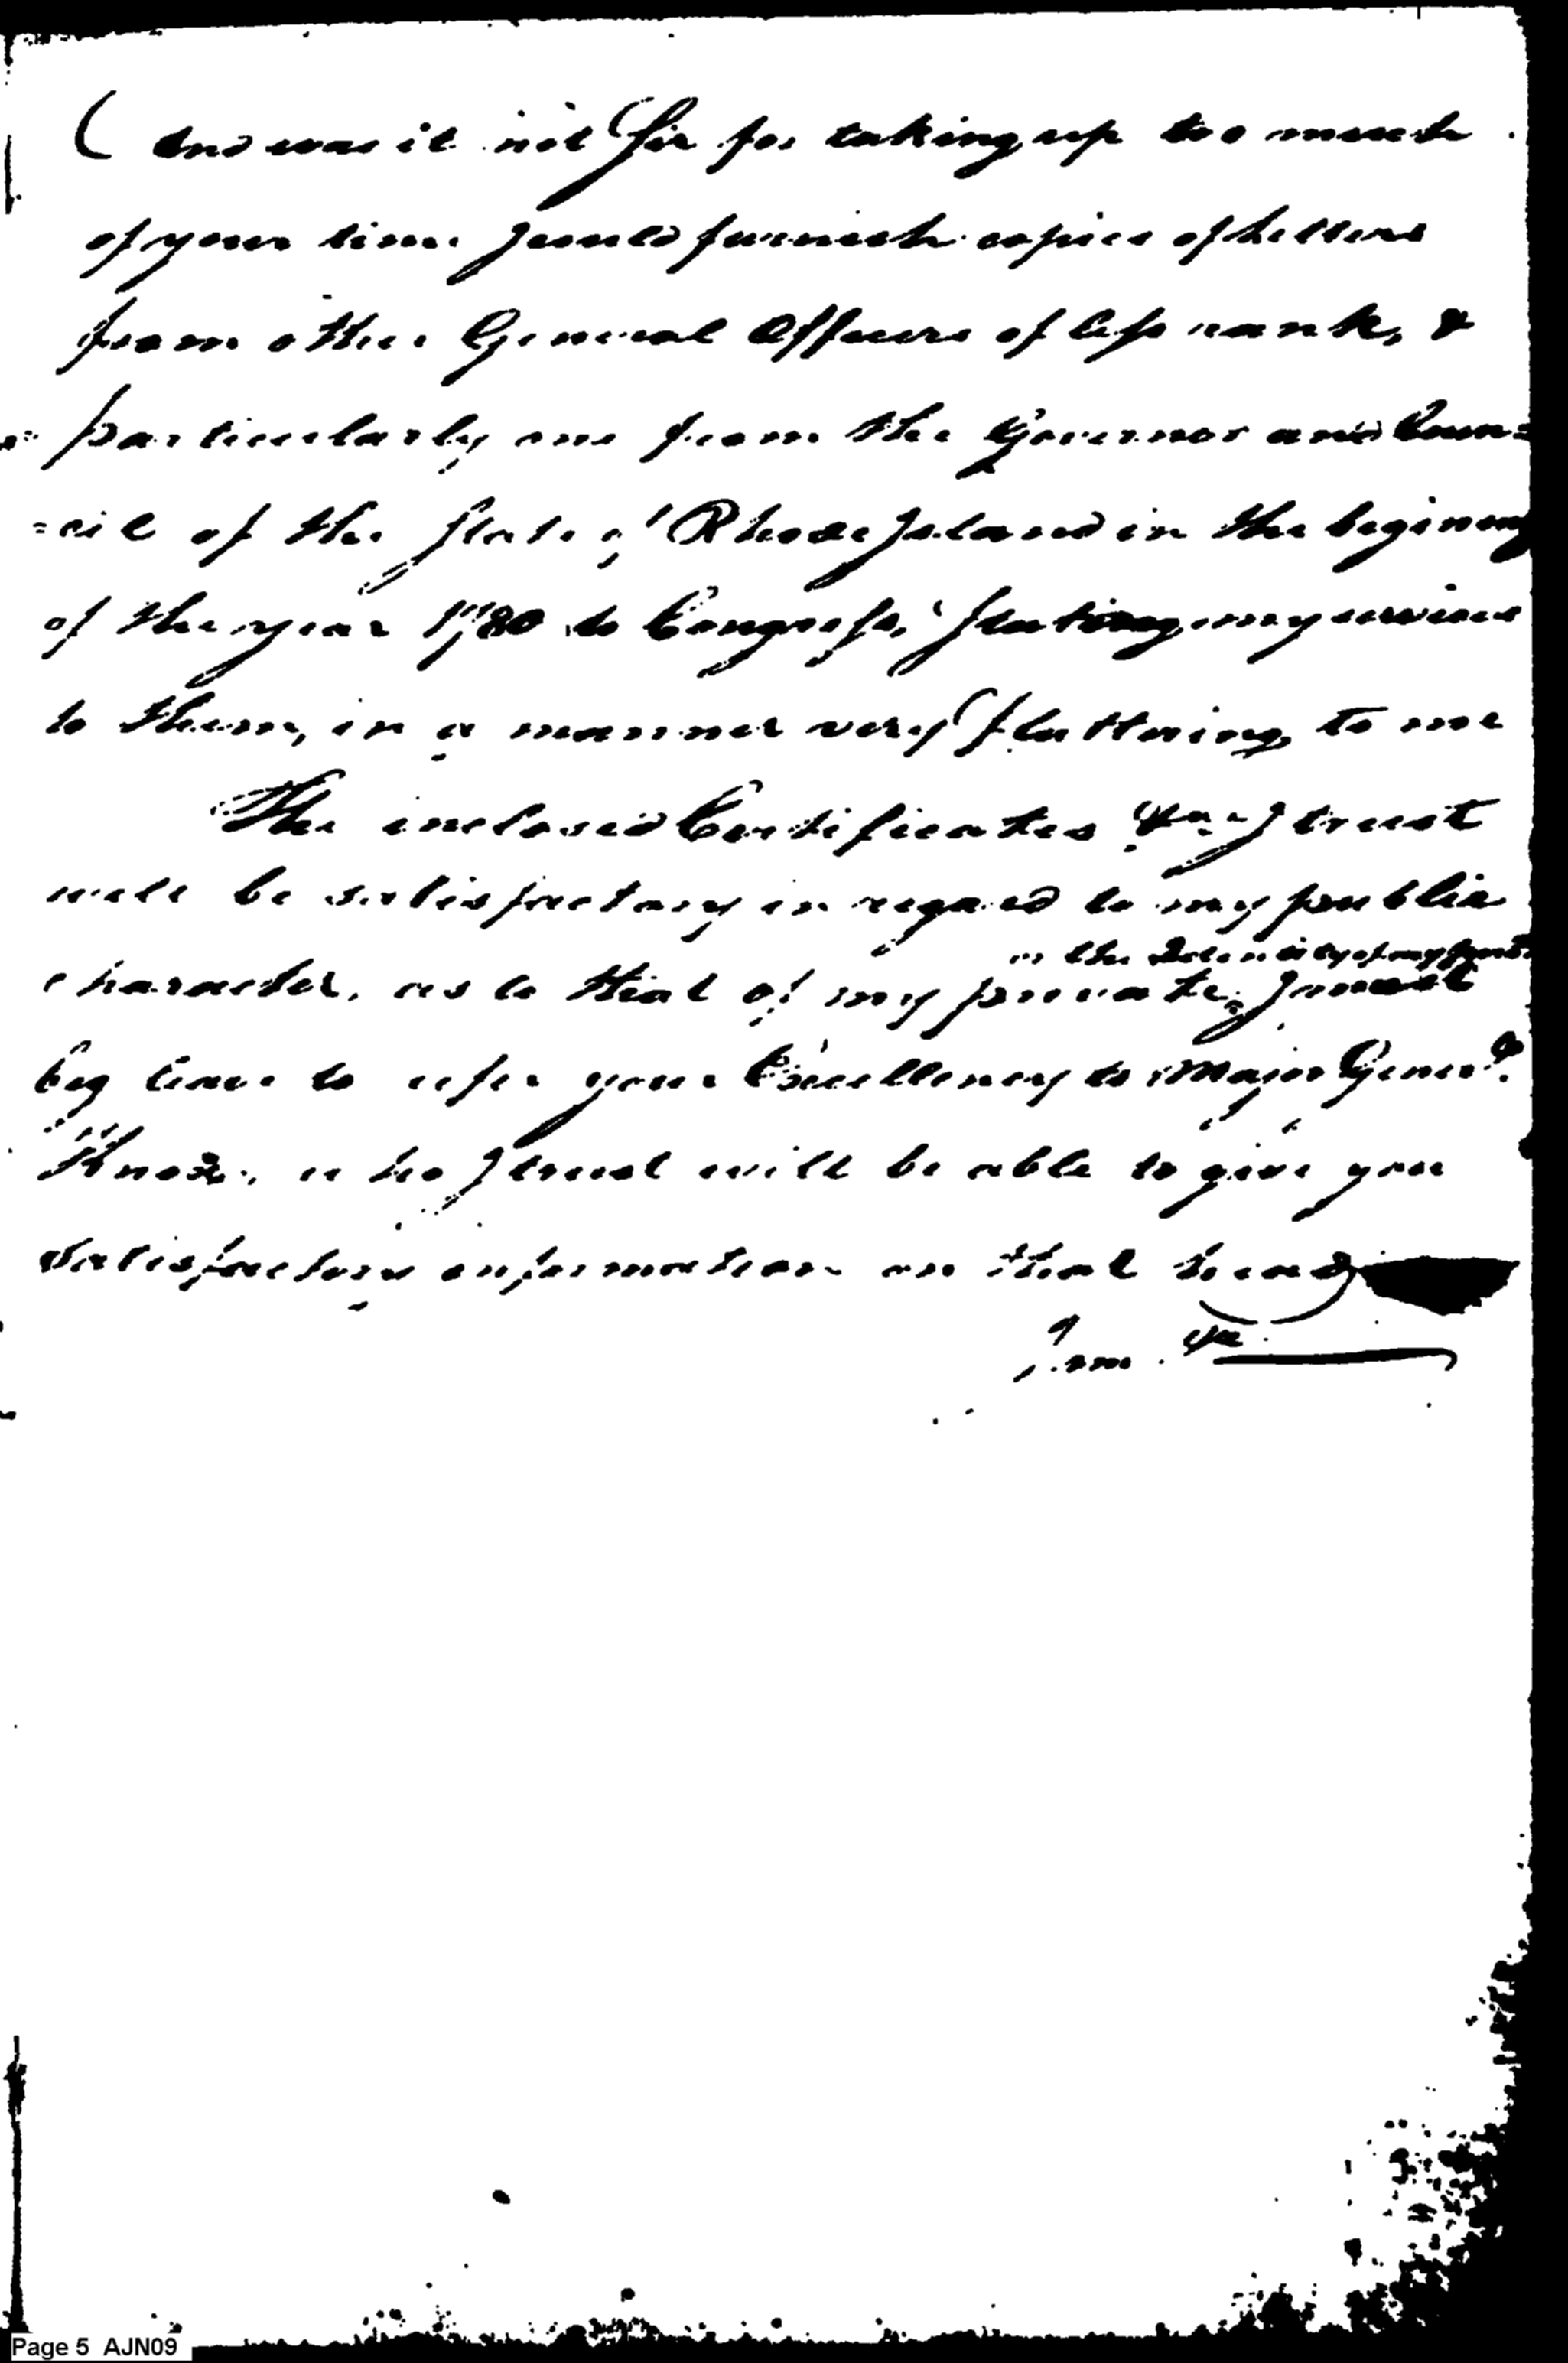 ( And was it not Sir for taking up too much
of your time I could furnish copies of Letters
from other General Officers of less rank, &
particularly one from the Governor and Coun=
=cil of the State of Rhode Island in the begining
of the year 1780 to Congress, Stating my services
to them, in a manner very flattering to me
The inclosed Certificates &ca I trust
will be satisfactory in regard to my public
or the Solidity of my
character, as to that of my private, I must
beg leave to refer your Excellency to Major Generl
Knox, who I trust will be able to give you
Satisfactory information on that head
I am &c
Page 5 AJN09